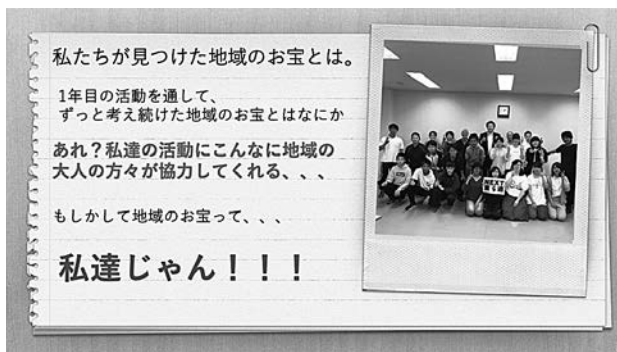 私たちが見つけた地域のお宝とは。
1年目の活動を通して、
ずっと考え続けた地域のお宝とはなにか
あれ？私達の活動にこんなに地域の
大人の方々が協力してくれる、、、
もしかして地域のお宝って、、、
私達じゃん！！！
NEXT